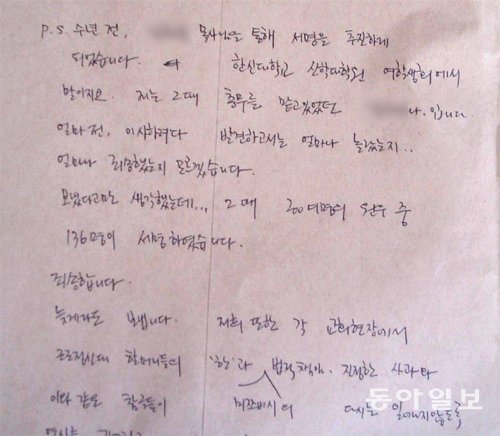 P.S. 수년 전, 목사님을 통해 서명을 추진하게
되었습니다. 한신대학교 신학대학원 여학생회에서
말이지요. 저는 그때 총무를 맡고있었던 나. 입니다
얼마전, 이사하려다 발견하고서는 얼마나 놀랐는지..
얼마나 죄송했는지 모르겠습니다.
보냈다고만 생각했는데... 그때 200여명의 원우 중
136명이 서명하였습니다.
죄송합니다.
늦게라도 보냅니다. 저희 또한 각 교회현장에서
근로정신대 할머니들의 '한'과 법적책임, 진정한 사과와
이와 같은 참극들이 미쯔비시의 다시는 일어나지않도록
동아일보